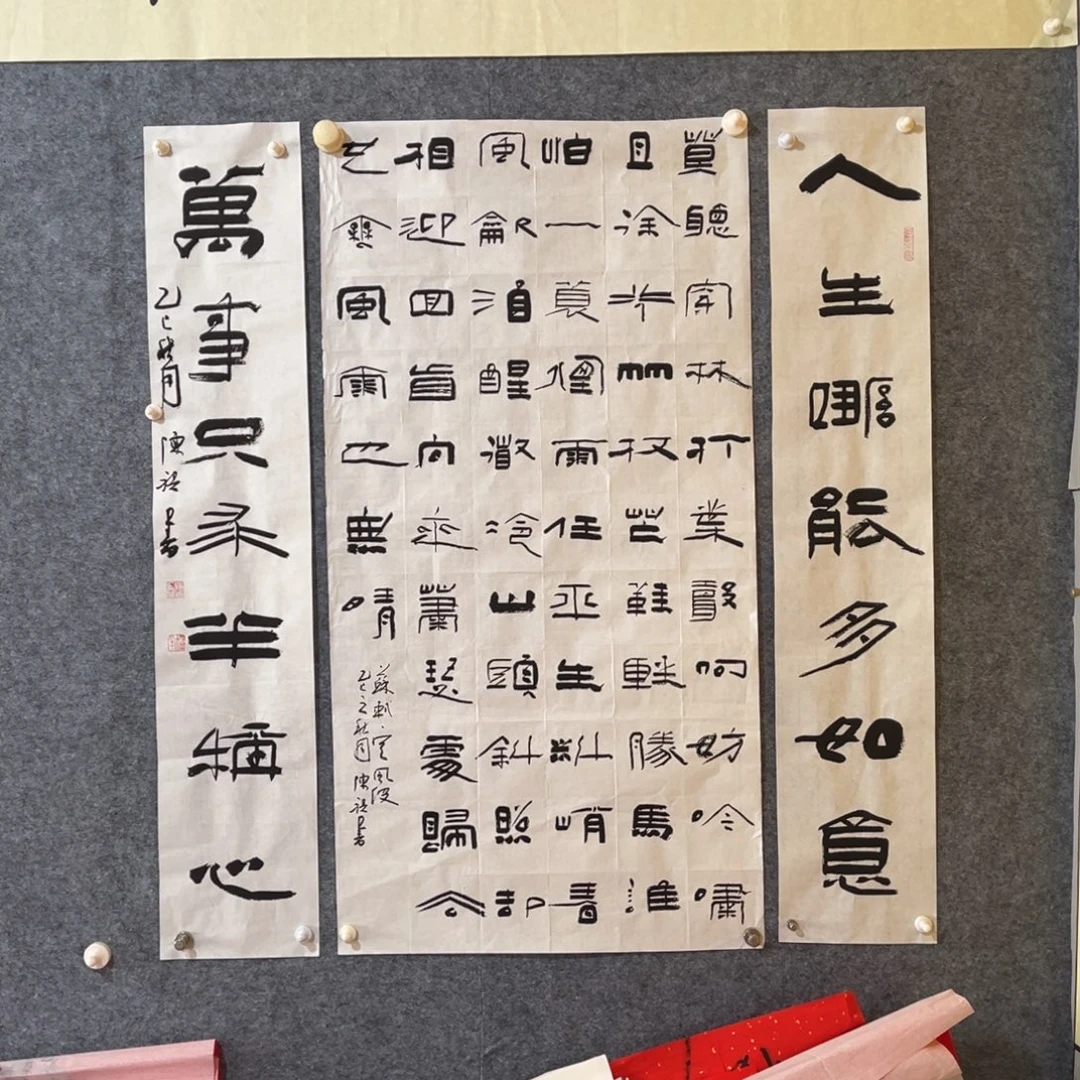 人生哪能多如意
莫聽穿林打葉聲呵妨吟嘯
且徐行竹杖芒鞋輕勝馬誰
怕一蓑煙雨任平生料峭春
風吹酒醒微冷山頭斜照卻
相迎回首向來蕭瑟處歸去
也無風雨也無晴
蘇軾·定風波
乙巳之秋月 陳 書
萬事只求半稱心
乙巳秋月 陳 書